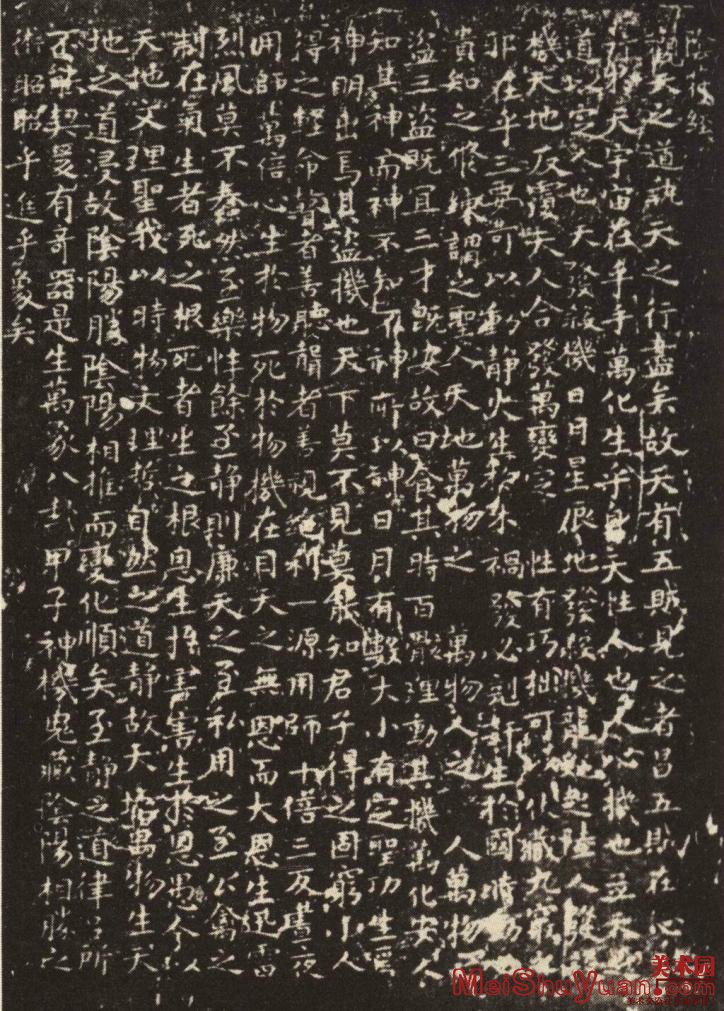 陰符經
觀天之道執天之行盡矣故天有五賊見之者昌五賊在心
行於天宇宙在乎手萬化生乎身天性人也人心機也立天
道以定人也天發殺機日月星辰地發殺機龍蛇起陸人發
機天地反覆天人合發萬變定 性有巧拙可以伏藏九竅
邪在乎三要可以動靜火生於木禍發必剋奸生於國時動
潰知之修練謂之聖人天地萬物之 萬物人之 人萬物
盜三盜既宜三才既安故曰食其時百骸理動其機萬化安人
知其神而神不知不神所以神日月有數大小有定聖功生
神明出焉其盜機也天下莫不見莫能知君子得之固窮小人
得之輕命瞽者善聽聾者善視絕利一源用師十倍三反晝夜
用師萬倍心生於物死於物機在目天之無恩而大恩生迅雷
烈風莫不蠢然至樂性餘至靜則廉天之至私用之至公禽之
制在氣生者死之根死者生之根恩生於害害生於恩愚人以
天地文理聖我以時物文理哲自然之道靜故天地萬物生天
地之道浸故陰陽勝陰陽相推而變化順矣至靜之道律呂所
不能契爰有奇器是生萬象八卦甲子神機鬼藏陰陽相勝之
術昭昭乎進乎象矣
美术园
MeiShuYuan.com